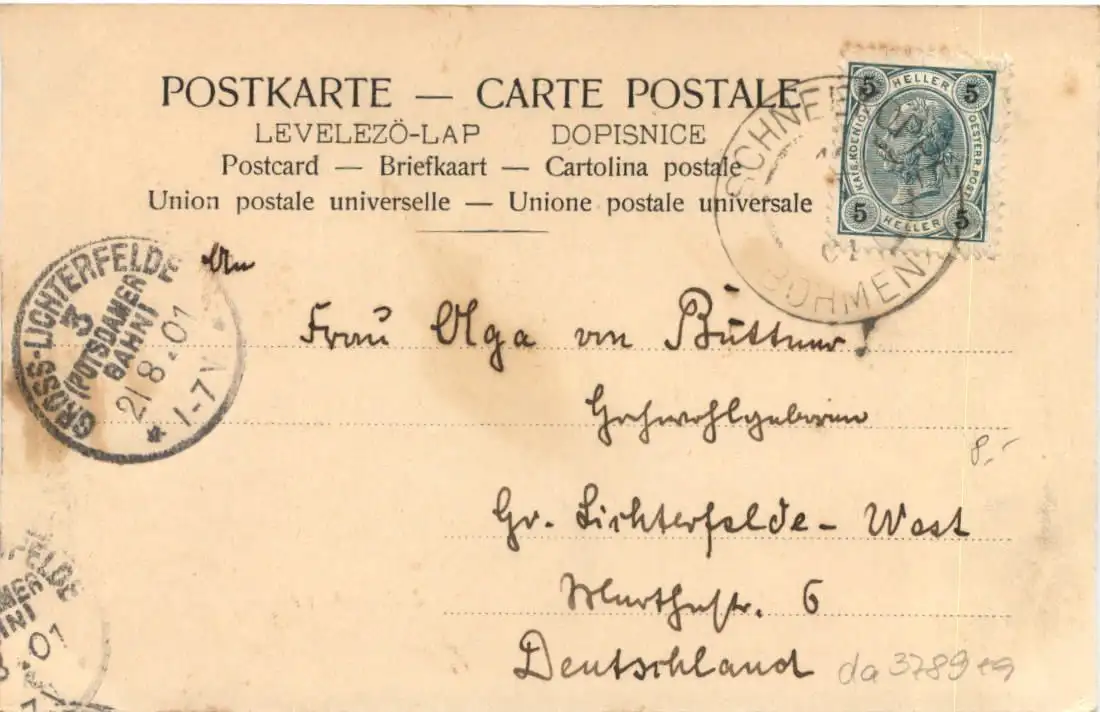 POSTKARTE — CARTE POSTALE
LEVELEZÖ-LAP DOPISNICE
Postcard — Briefkaart — Cartolina postale
Union postale universelle — Unione postale universale
5 HELLER 5
KAIS. KOENIGL. OESTERR. POST
5 HELLER 5
BÖHMEN
01
GROSS-LICHTERFELDE
3
(POTSDAMER
BAHN)
21 8.01
* 1-7V
An
Frau Olga von Büttner!
Hochwohlgeboren
8.-
Gr. Lichterfelde-West
6
Deutschland
da3789 e9
01